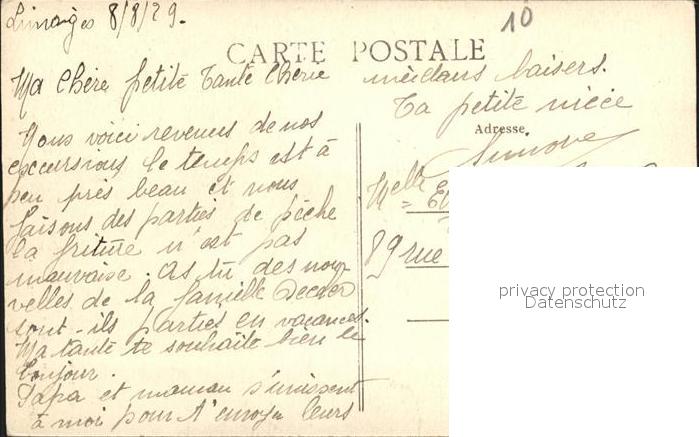 Limoges 8/8/29.
10
CARTE POSTALE
Ma Chère petite Tante Chérie
Nous voici revenus de nos
excursions le temps est à
peu près beau et nous
faisons des parties de pêche
la friture n'est pas
mauvaise. As tu des nou-
velles de la famille
sont-ils parties en vacances.
Ma tante te souhaite bien le
bonjour.
Papa et maman s'unissent
à moi pour t'envoyer leurs
meilleurs baisers.
Ta petite nièce
Adresse
Simone
Melle
89 rue
privacy protection
Datenschutz